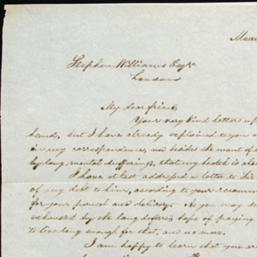 Stephen Williams Esqr
London
My dear friend,
Your very kind letters
hand, but I have already explained to you
in my correspondence, and besides the want of
by long mental sufferings, that my health is als
I have at last addressed a letter to
of my debt to him, according to your recomm
for your perusal and delivery. As you may
exhaust by the long defered hope of paying
to live long enough for that, and no more.
I am happy to learn that you are